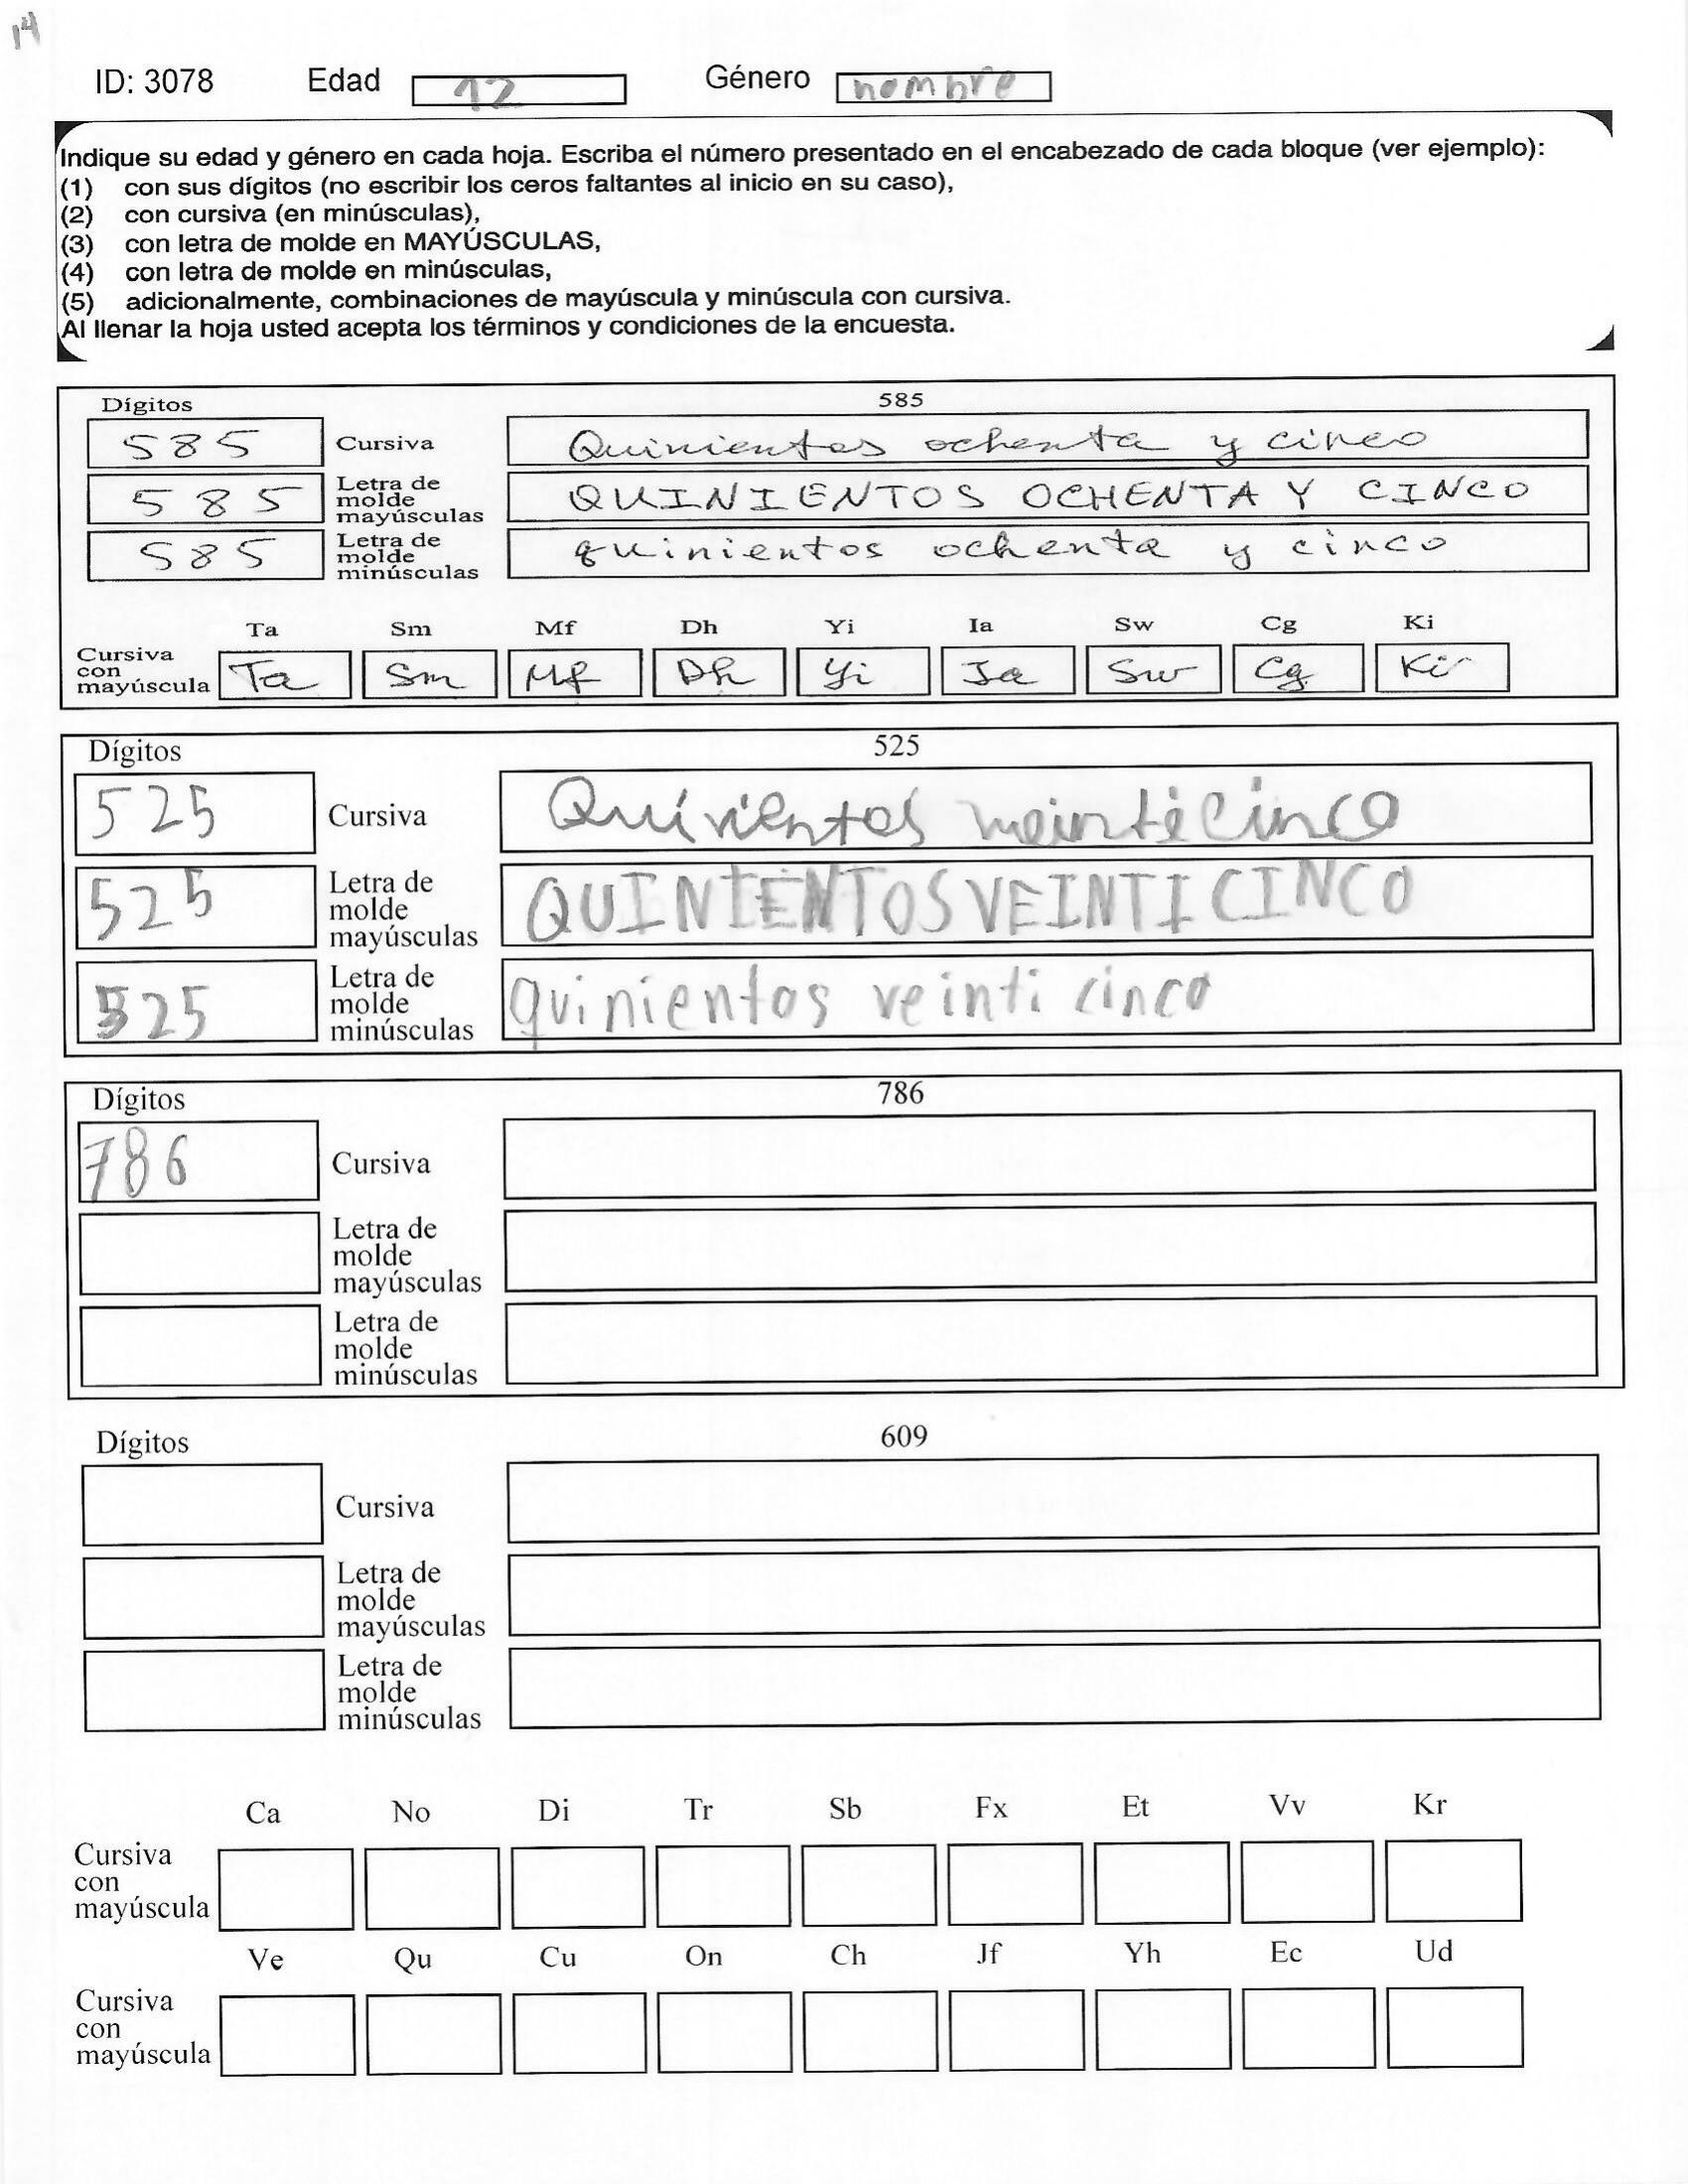 14
ID: 3078 Edad 12 Género hombre
Indique su edad y género en cada hoja. Escriba el número presentado en el encabezado de cada bloque (ver ejemplo):
(1) con sus dígitos (no escribir los ceros faltantes al inicio en su caso),
(2) con cursiva (en minúsculas),
(3) con letra de molde en MAYÚSCULAS,
(4) con letra de molde en minúsculas,
(5) adicionalmente, combinaciones de mayúscula y minúscula con cursiva.
Al llenar la hoja usted acepta los términos y condiciones de la encuesta.
Dígitos 585
585 Cursiva Quinientos ochenta y cinco
585 Letra de molde mayúsculas QUINIENTOS OCHENTA Y CINCO
585 Letra de molde minúsculas quinientos ochenta y cinco
Ta Sm Mf Dh Yi Ia Sw Cg Ki
Cursiva con mayúscula Ta Sm Mf Dh Yi Ia Sw Cg Ki
Dígitos 525
525 Cursiva Quinientos
525 Letra de molde mayúsculas QUINIENTOS VEINTI CINCO
525 Letra de molde minúsculas quinientos veinti cinco
Dígitos 786
786 Cursiva
Letra de molde mayúsculas
Letra de molde minúsculas
Dígitos 609
Cursiva
Letra de molde mayúsculas
Letra de molde minúsculas
Ca No Di Tr Sb Fx Et Vv Kr
Cursiva con mayúscula
Ve Qu Cu On Ch Jf Yh Ec Ud
Cursiva con mayúscula